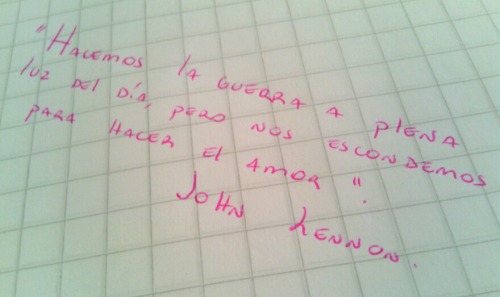 "HACEMOS lA GUERRA A PlENA
lUZ DEl DÍA, PERO NOS ESCONDEMOS
PARA HACER El AMOR".
JOHN LENNON.